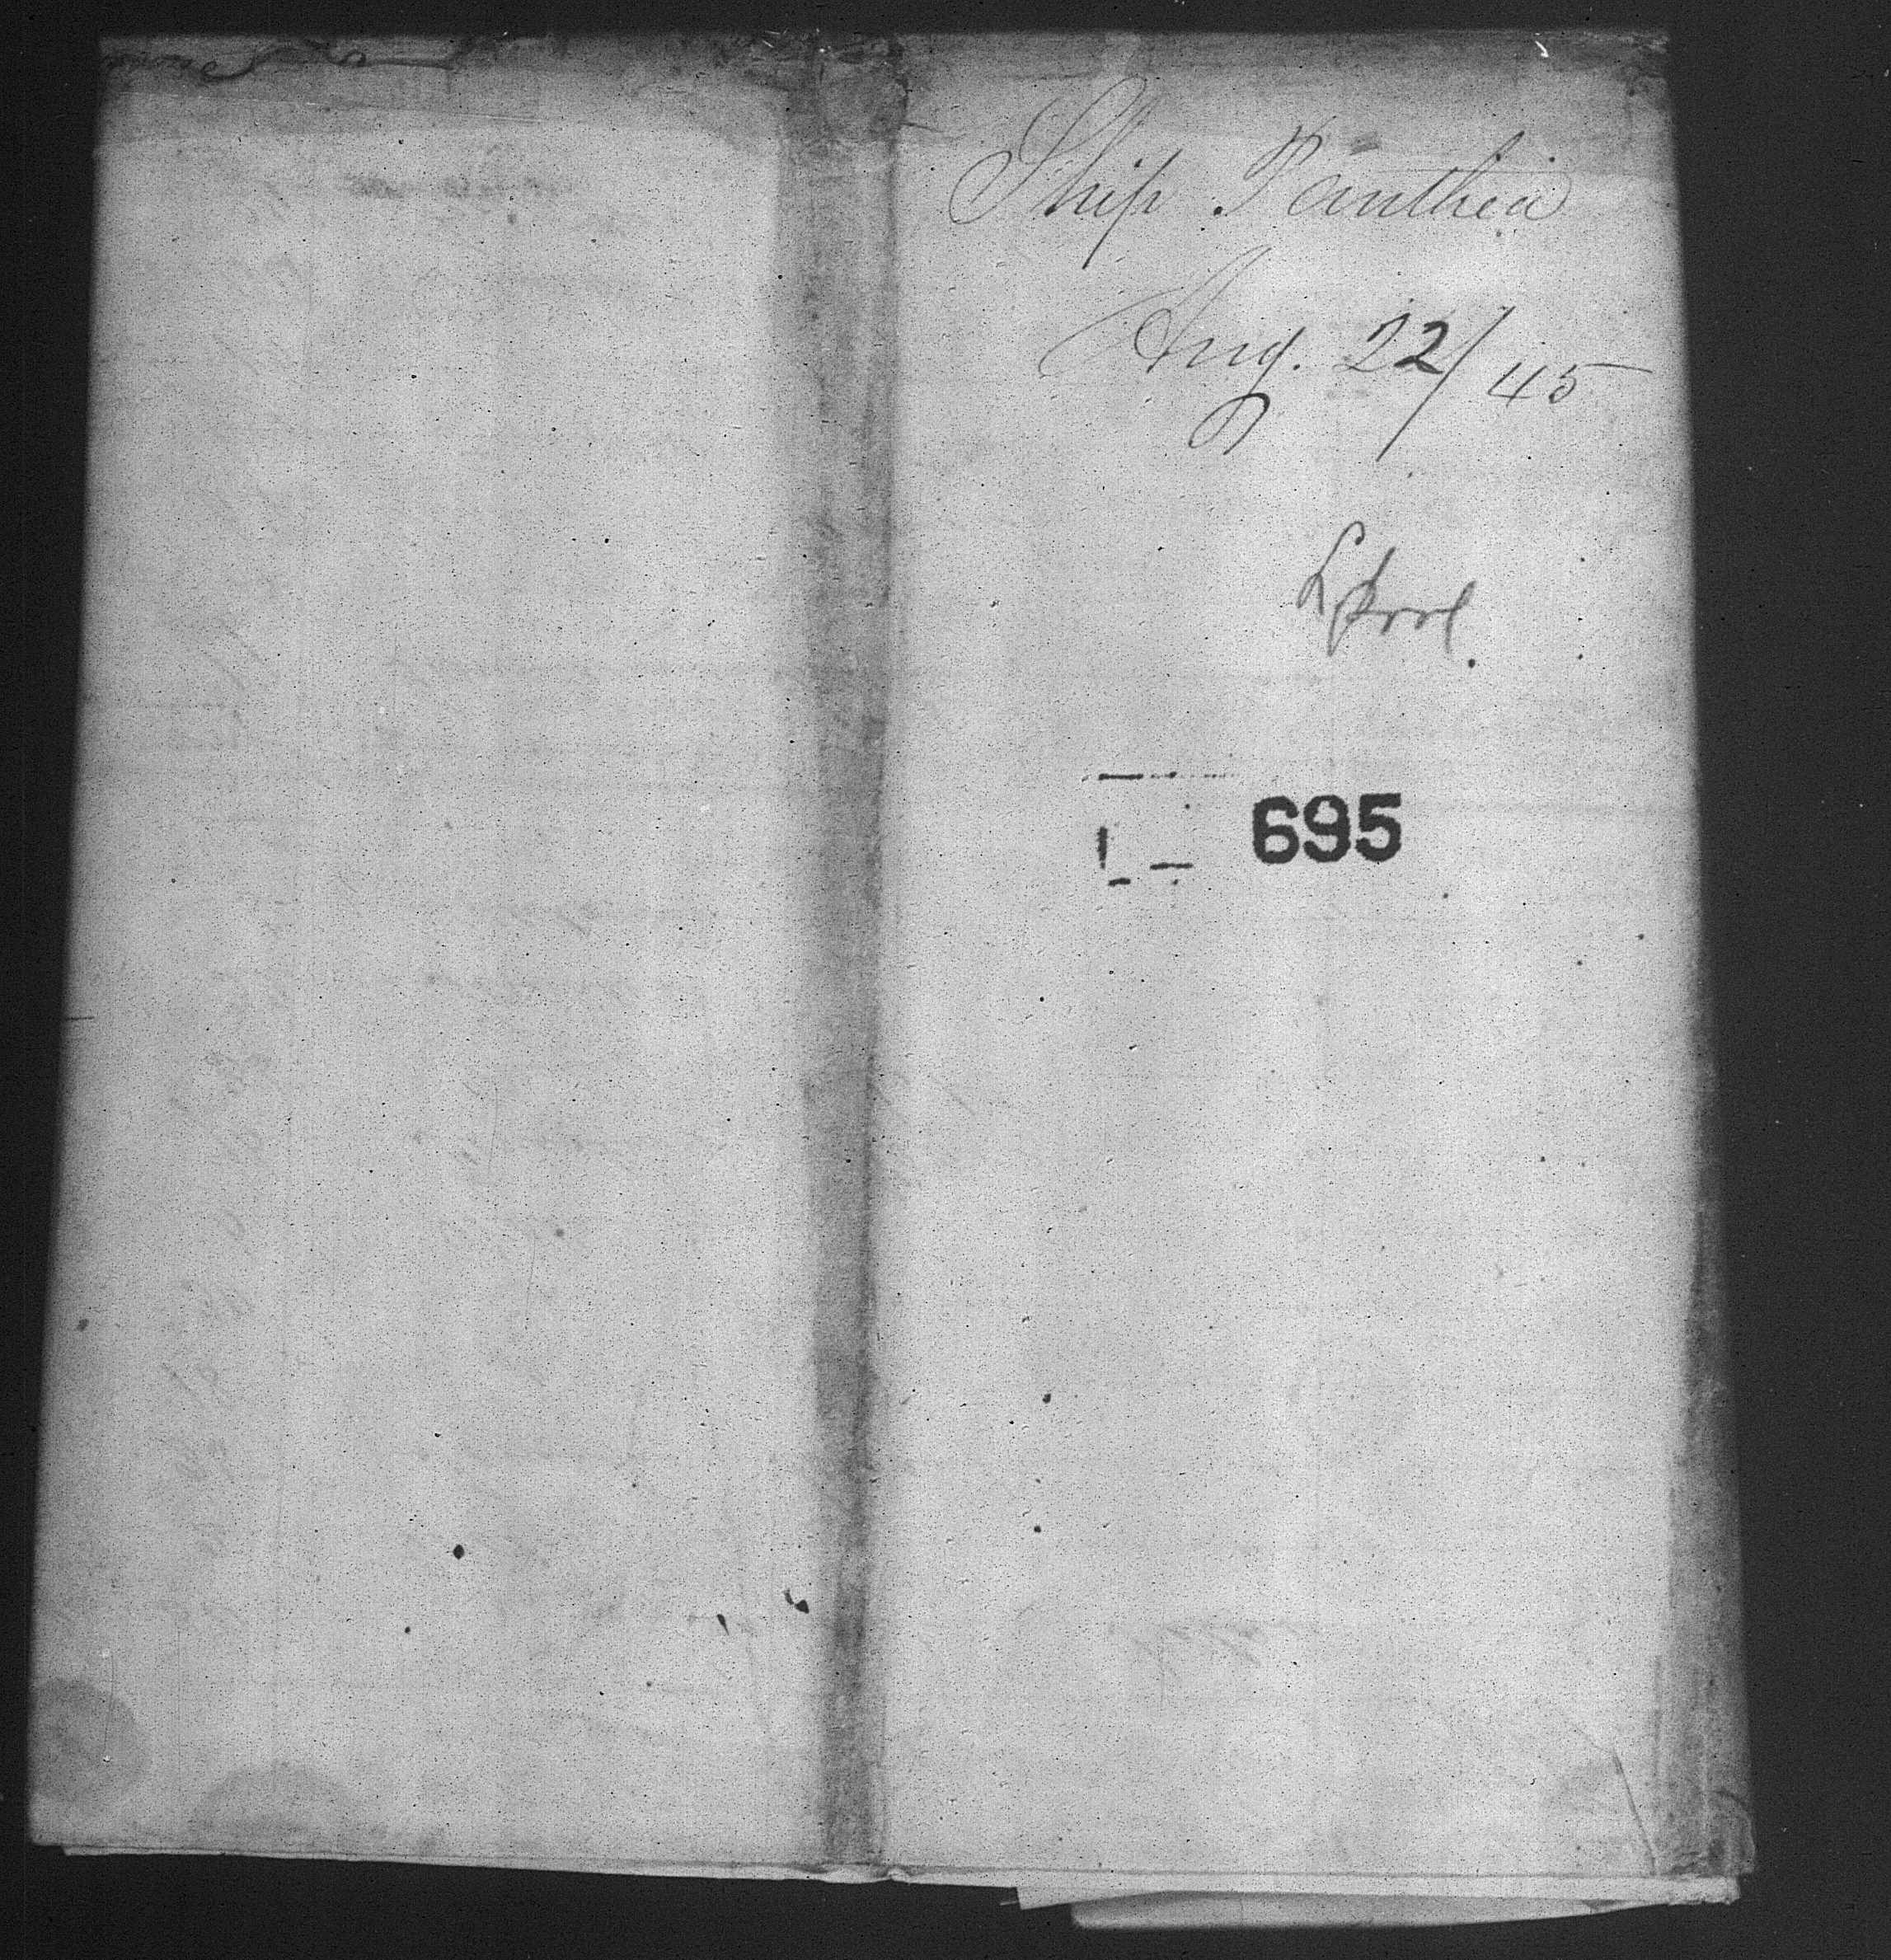 Ship Panthea
Aug. 22/45
Lpool
695